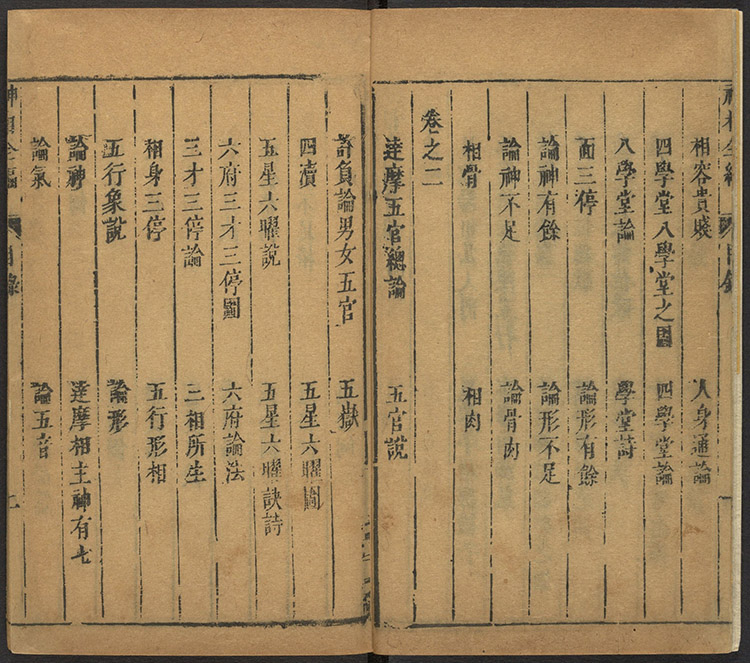 相容貴賤　人身通論
四學堂八學堂之圖　四學堂論
八學堂論　學堂詩
面三停　論形有餘
論神有餘　論形不足
論神不足　論骨肉
相骨　相肉
卷之二
達摩五官總論　五官說
許負論男女五官　五嶽
四瀆　五星六曜圖
五星六曜說　五星六曜訣詩
六府三才三停圖　六府論法
三才三停論　三相所生
相身三停　五行形相
五行象說　論形
論神　達摩相主神有七
論氣　論五音
神相全編　目錄